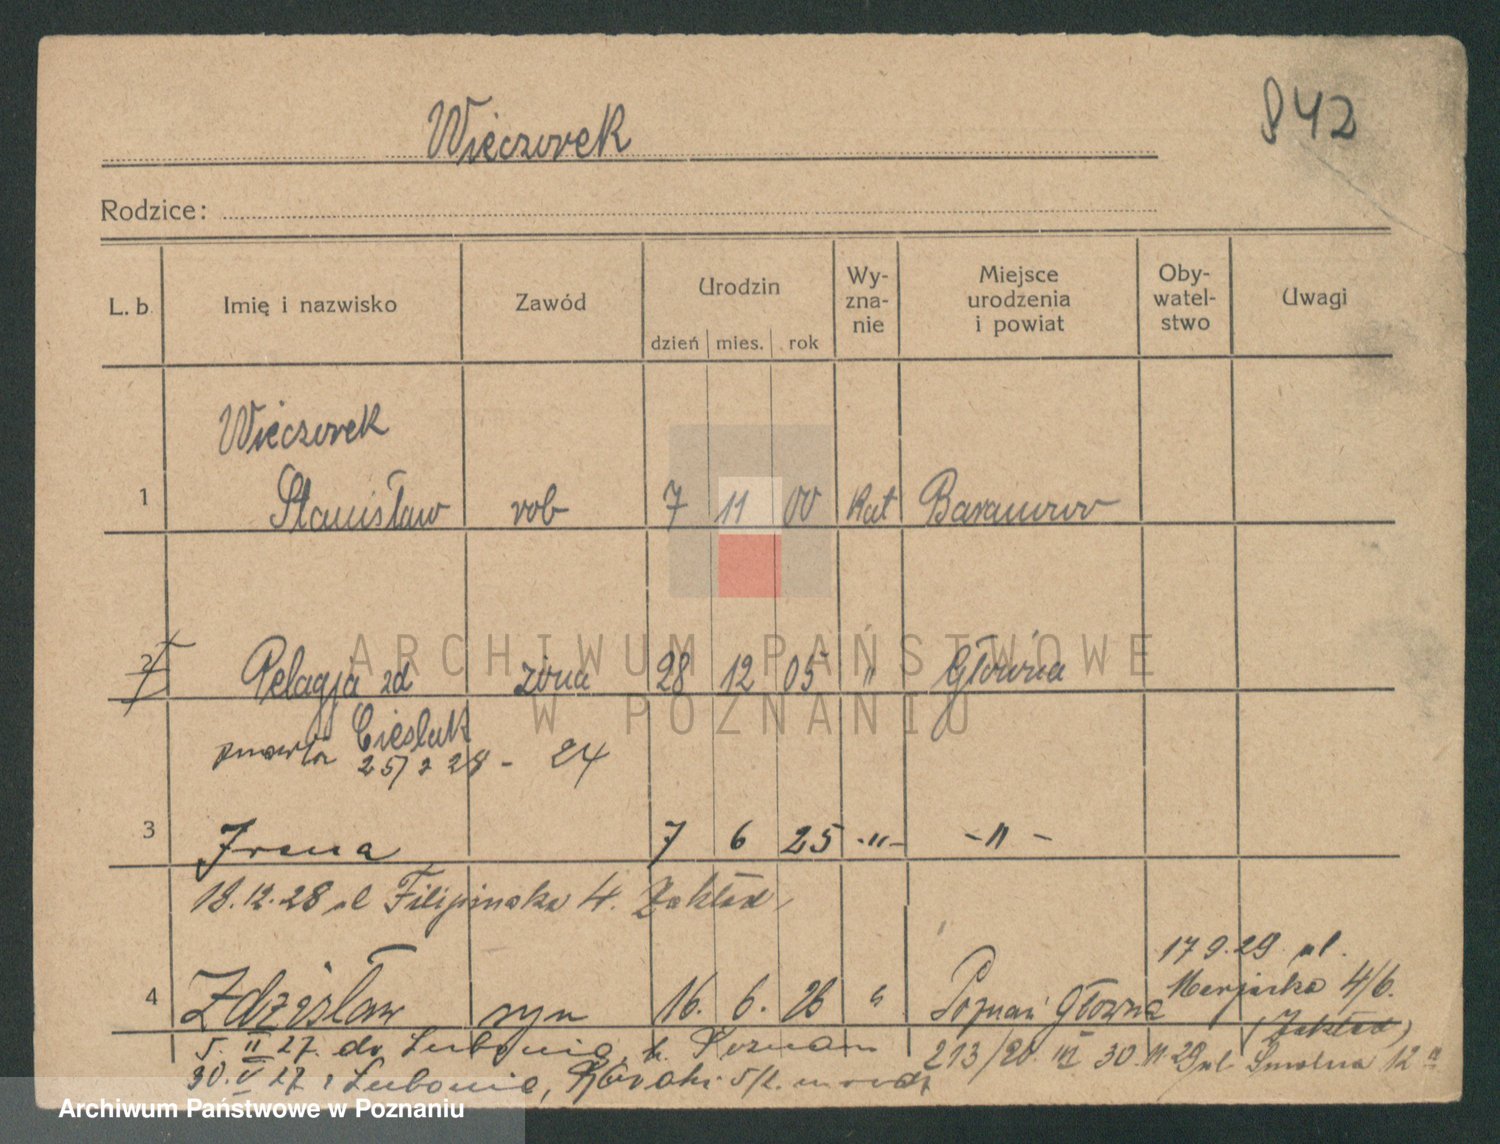 842
Wieczorek
Rodzice:
L. b. Imię i nazwisko Zawód Urodzin dzień mies. rok Wy-zna-nie Miejsce urodzenia i powiat Oby-watel-stwo Uwagi
Wieczorek
1 Stanisław rob 7 11 00 Kat Baranowo
2 Pelagja zd żona 28 12 05 " Główna
Cieslak
zmarła 25/2 28 - 24
3 Irena 7 6 25 -"- -"-
19.12.28 ul Filipinska 4. Zakład
17 9.29 ul.
4/6.
4 Zdzisław syn 16. 6. 26 " Poznań Główna
(Zakład)
5. II 27. do Lubonia, p. Poznań
213/20. III 30.11 29 ul Smolna 12
30. V 27. Lubonia, 5/2.
ARCHIWUM PAŃSTWOWE
W POZNANIU
Archiwum Państwowe w Poznaniu